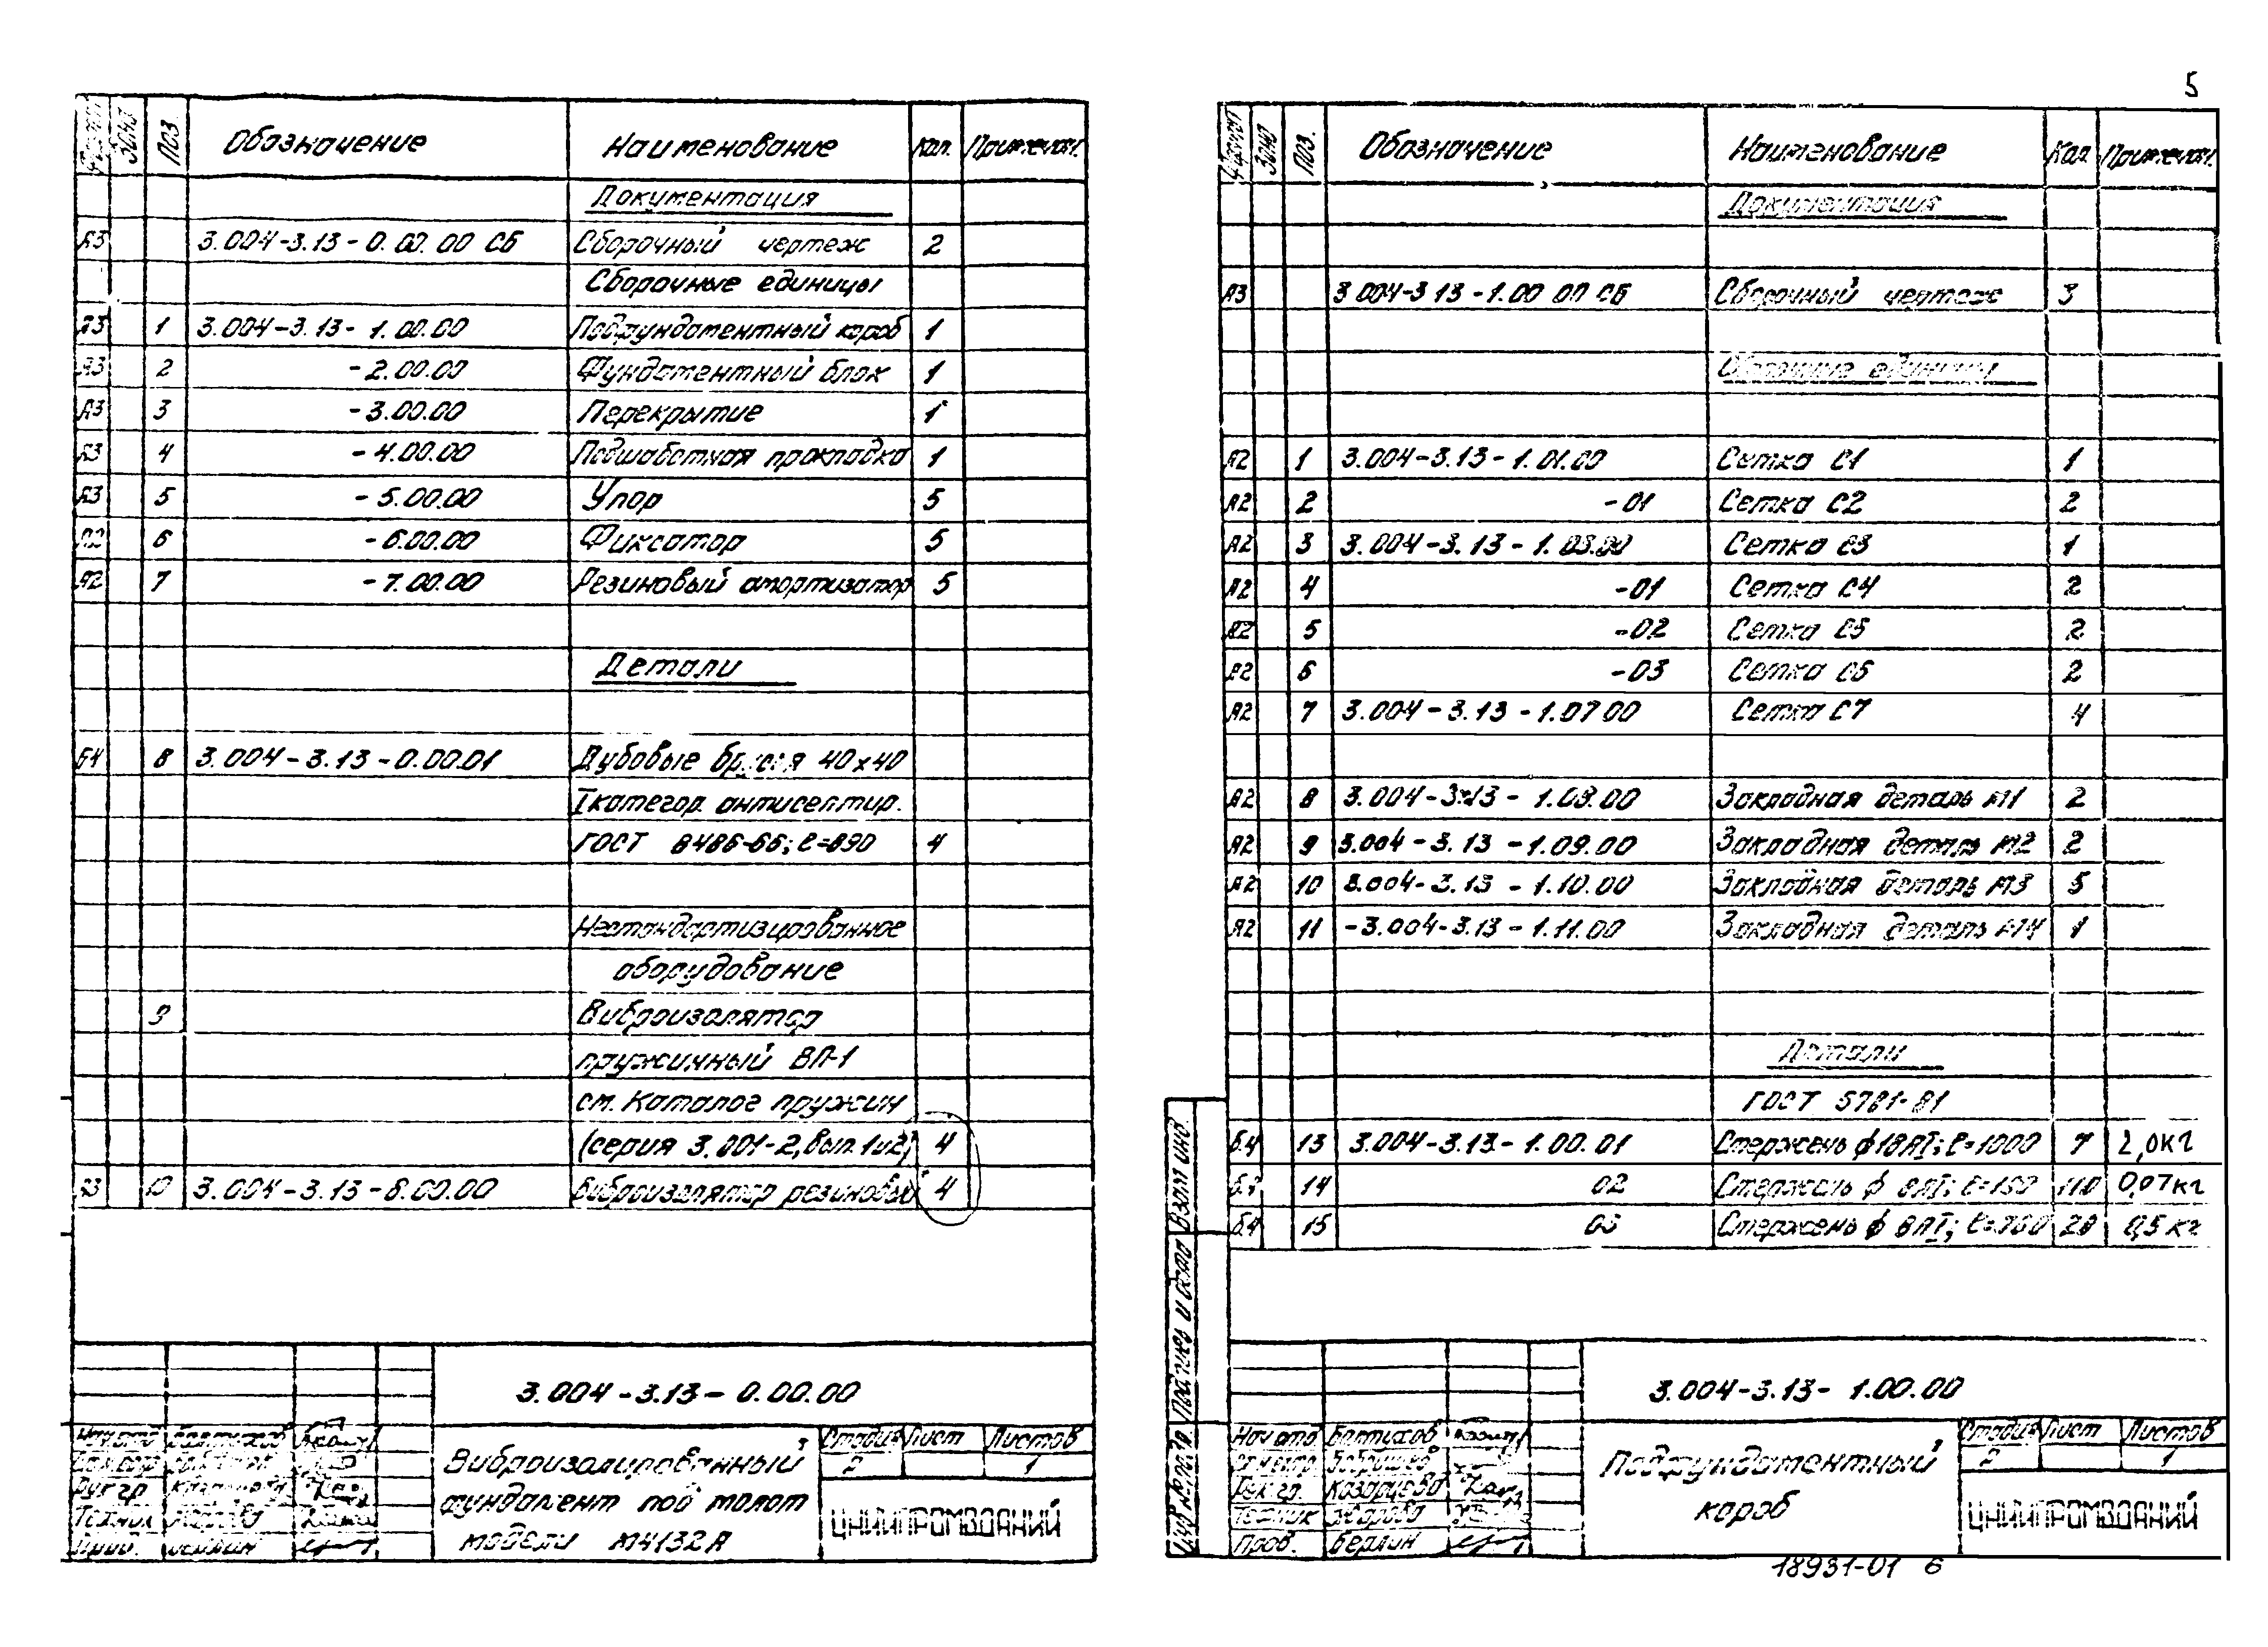 5
Формат Зона Поз. Обозначение Наименование Кол. Примечан.
Документация
А3 3.004-3.13-0.00.00 СБ Сборочный чертеж 2
Сборочные единицы
А3 1 3.004-3.13-1.00.00 Подфундаментный короб 1
А3 2 -2.00.00 Фундаментный блок 1
А3 3 -3.00.00 Перекрытие 1
А3 4 -4.00.00 Подшаботная прокладка 1
А3 5 -5.00.00 Упор 5
6 -6.00.00 Фиксатор 5
А2 7 -7.00.00 Резиновый амортизатор 5
Детали
Б4 8 3.004-3.13-0.00.01 Дубовые брусья 40х40
I категор. антисептир.
ГОСТ 8486-66; ℓ=890 4
Нестандартизированное
оборудование
9 Виброизолятор
пружинный ВП-1
см. Каталог пружин
(серия 3.001-2, вып. 1и2) 4
А3 10 3.004-3.13-8.00.00 Виброизолятор резиновый 4
3.004-3.13-0.00.00
Нач отд
Рук гр
Техник
Пров. Берлин
Виброизолированный
фундамент под молот
модели М4132А
Стадия Лист Листов
2 1
ЦНИИПРОМЗДАНИЙ
Формат Зона Поз. Обозначение Наименование Кол Примечан.
Документация
А3 3.004-3.13-1.00.00 СБ Сборочный чертеж 3
Сборочные единицы
А2 1 3.004-3.13-1.01.00 Сетка С1 1
А2 2 -01 Сетка С2 2
А2 3 3.004-3.13-1.03.00 Сетка С3 1
А2 4 -01 Сетка С4 2
А2 5 -02 Сетка С5 2
А2 6 -03 Сетка С6 2
А2 7 3.004-3.13-1.07.00 Сетка С7 4
А2 8 3.004-3.13-1.08.00 Закладная деталь М1 2
А2 9 3.004-3.13-1.09.00 Закладная деталь М2 2
А2 10 3.004-3.13-1.10.00 Закладная деталь М3 5
А2 11 -3.004-3.13-1.11.00 Закладная деталь М4 1
Детали
ГОСТ 5781-81
Б.4 13 3.004-3.13-1.00.01 Стержень ϕ18АI; ℓ=1000 7 2,0кг
Б.4 14 02 Стержень ϕ 8АI; ℓ=150 110 0,07кг
Б.4 15 03 Стержень ϕ 8АI; 28 0,5 кг
Взам инв.
Подпись и дата
Инв № подл
3.004-3.13-1.00.00
Нач отд
Рук. гр. Казарцева
Техник
Пров. Берлин
Подфундаментный
короб
Стадия Лист Листов
2 1
ЦНИИПРОМЗДАНИЙ
18931-01 6